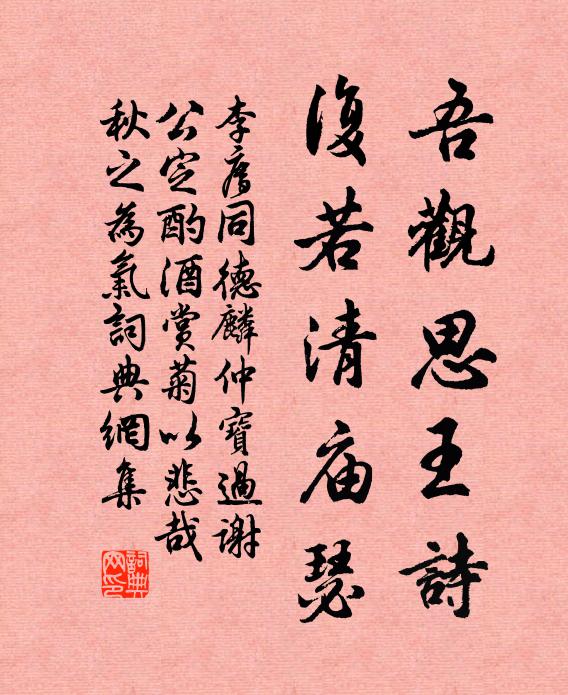 吾觀思王詩
復若清庙瑟
李廌同德麟仲寶過謝
公定酌酒賞菊以悲哉
秋之為氣詞典網集
詞典
网印